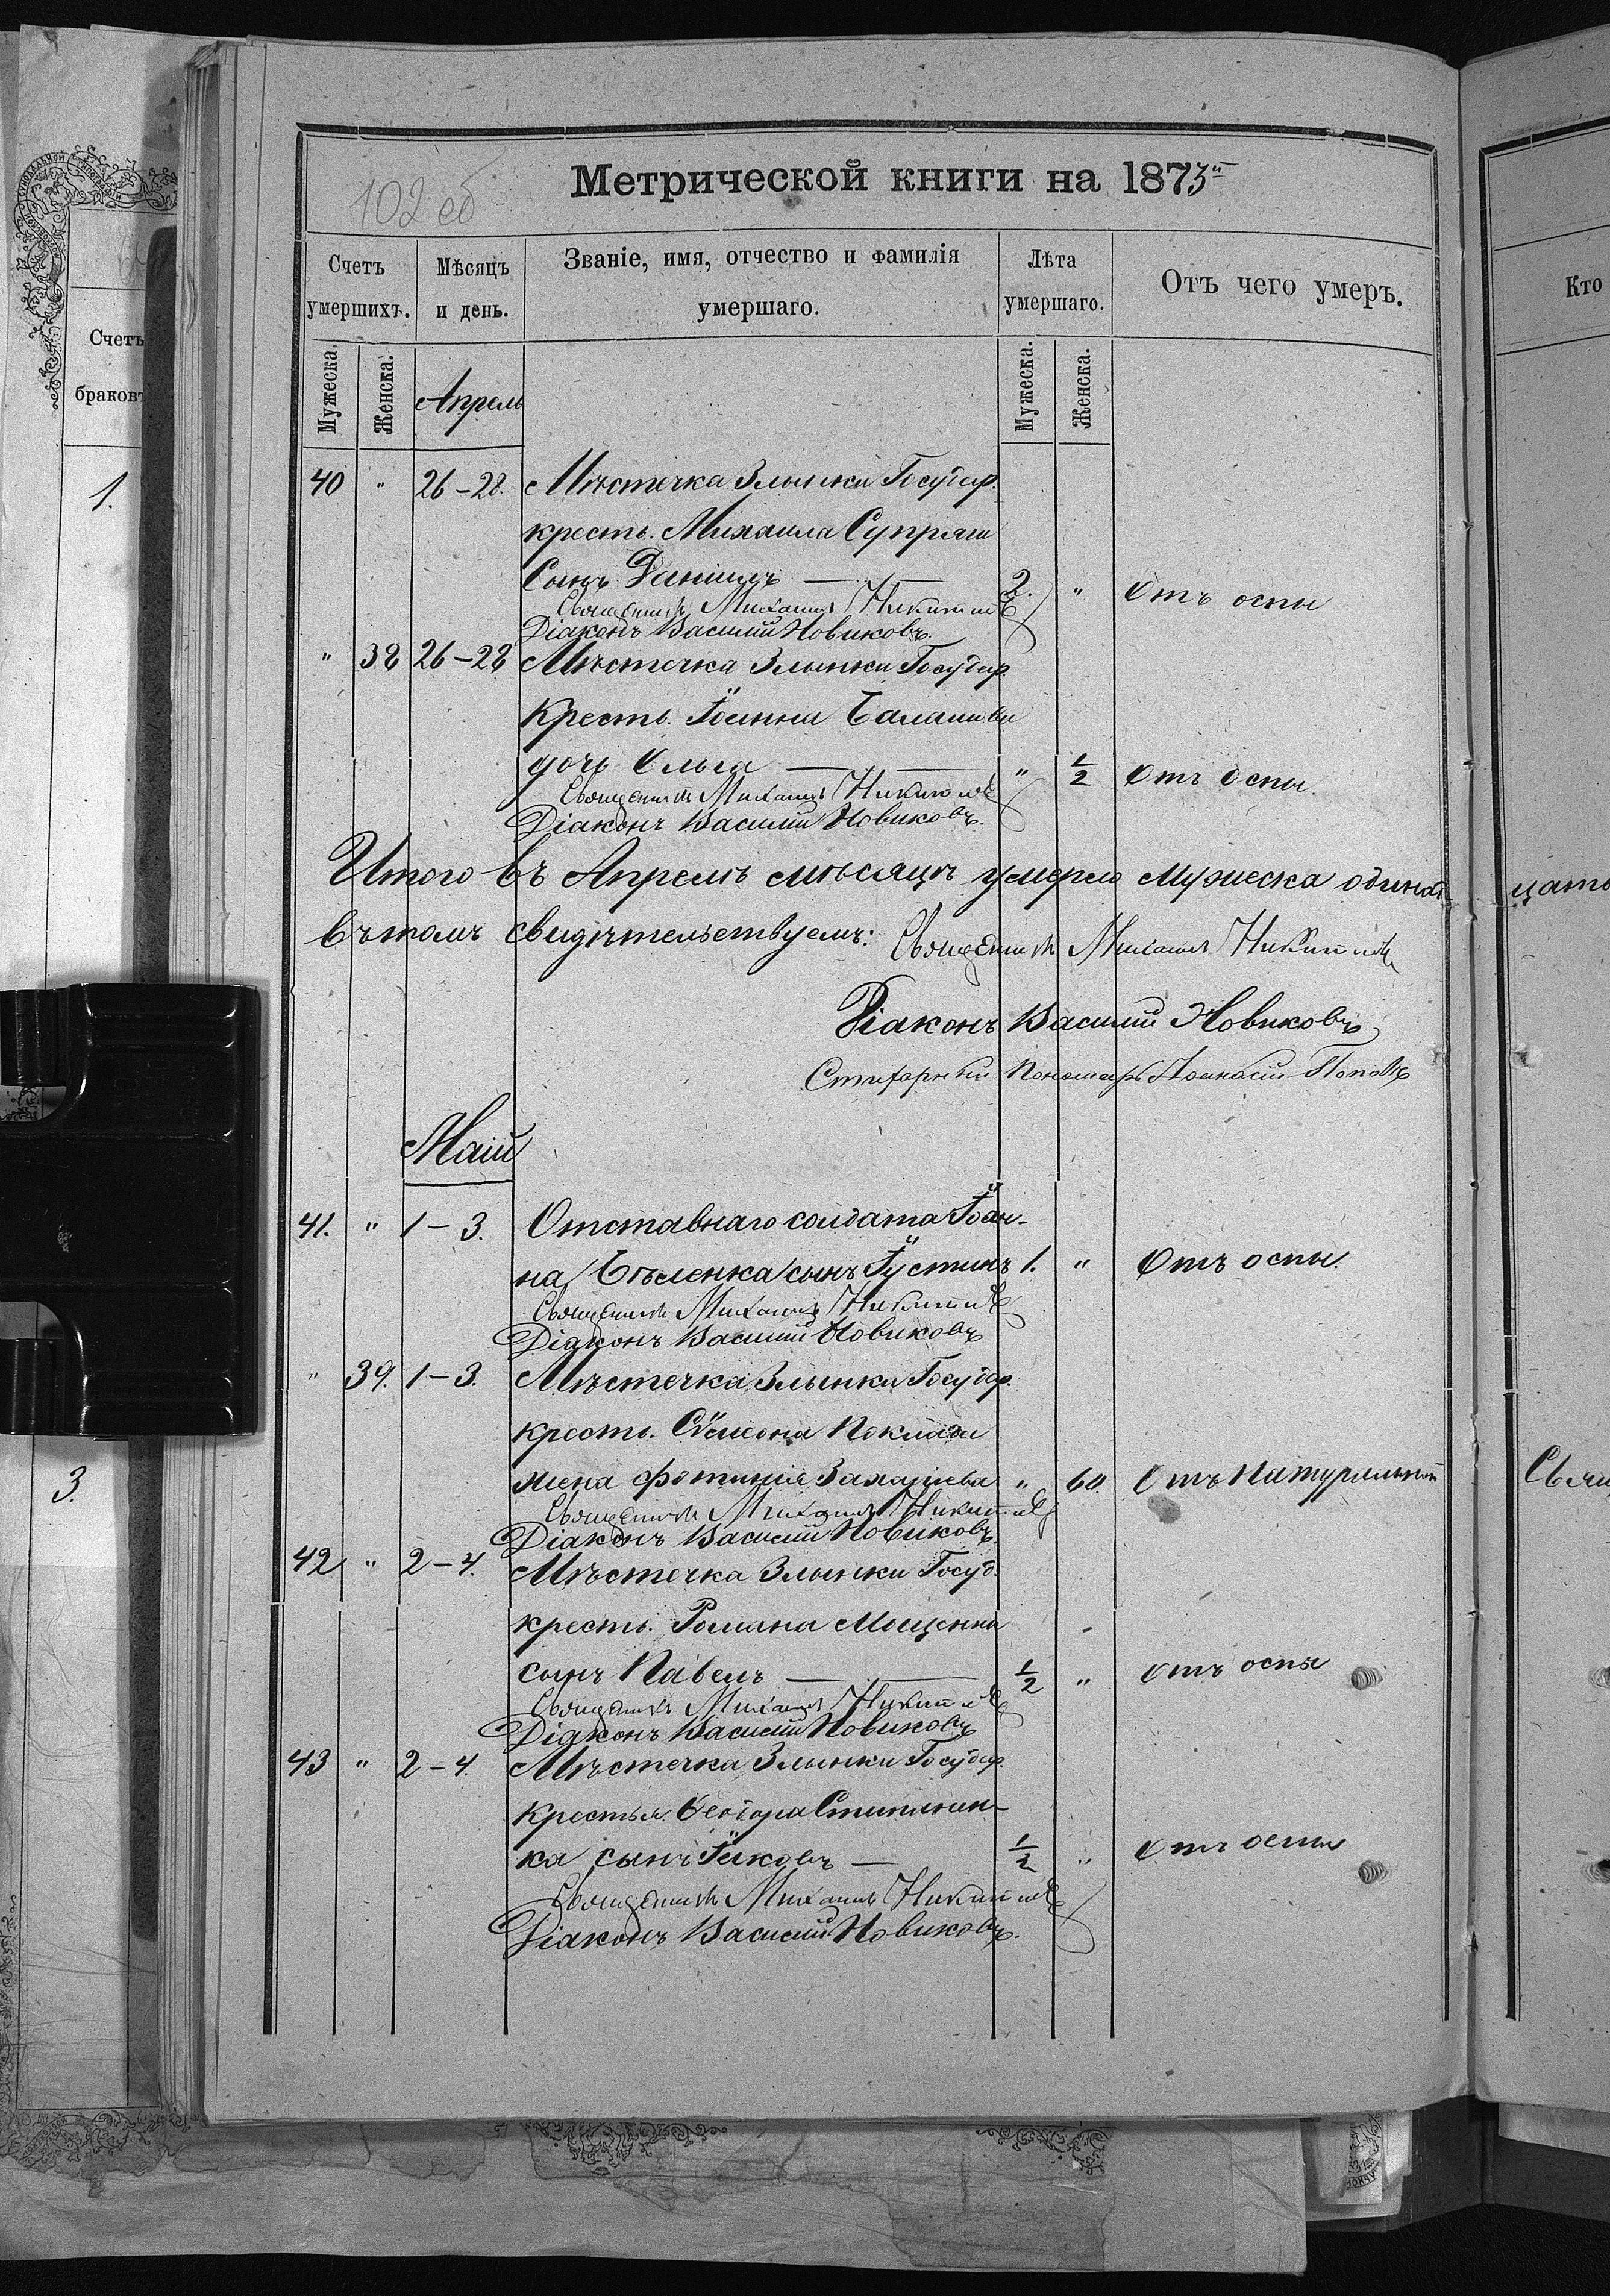 102 об
Метрической книги на 1873й
Счетъ умершихъ.
Мѣсяцъ и день.
Званіе, имя, отчество и фамилія умершаго.
Лѣта умершаго.
Отъ чего умеръ.
Мужеска.
Женска.
Апрель
Мужеска.
Женска.
40 " 26-28. Мѣстечка Злынки Государ.
кресть. Михаила Супряги
Сынъ Даніилъ — 2. " Отъ оспы
Священникъ Михаилъ Никитинъ
Діаконъ Василій Новиковъ.
" 38 26-28 Мѣстечка Злынки Государ.
кресть. Іоанна Балашова
дочь Ольга — " 1/2 Отъ оспы.
Священникъ Михаилъ Никитинъ
Діаконъ Василій Новиковъ.
Итого въ Апрелѣ мѣсяцѣ умерло мужеска одинад-
въ томъ свидѣтельствуемъ: Священникъ Михаилъ Никитинъ
Діаконъ Василій Новиковъ
Стихарный Пономарь Поповъ
Маій
41. " 1-3. Отставнаго солдата Іоан-
на Бѣленка сынъ Іустинъ 1. " Отъ оспы.
Священникъ Михаилъ Никитинъ
Діаконъ Василій Новиковъ
" 39. 1-3. Мѣстечка Злынки Государ.
кресть. Сѵмеона Поклада
жена Фотинія Захаріева " 60. Отъ натуральной
Священникъ Михаилъ Никитинъ
Діаконъ Василій Новиковъ.
42 " 2-4. Мѣстечка Злынки Госуд.
кресть. Романа Мощенка
сынъ Павелъ — 1/2 " отъ оспы
Священникъ Михаилъ Никитинъ
Діаконъ Василій Новиковъ
43 " 2-4. Мѣстечка Злынки Государ.
крестья. Ѳеодора
ка сынъ Іаковъ — 1/2 " Отъ оспы
Священникъ Михаилъ Никитинъ
Діаконъ Василій Новиковъ.
Счетъ
браковъ
1.
3.
Кто
цать
Свящ